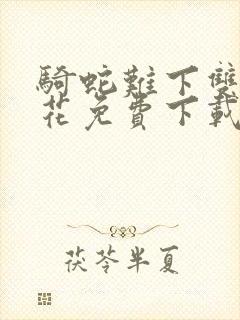 騎蛇難下雙
花免費下載
茯苓半夏